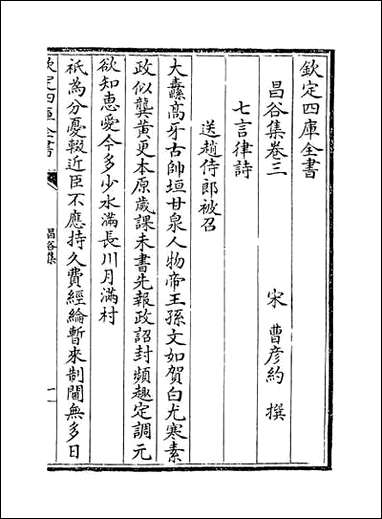 欽定四庫全書
昌谷集卷三
宋 曹彦約 撰
七言律詩
送趙侍郎被召
大纛髙牙古帥垣甘泉人物帝王孫文如賀白尤寒素
政似龔黄更本原歳課未書先報政詔封頻趣定調元
欲知恵愛今多少水滿長川月滿村
祇為分憂輟近臣不應持久費經綸暫來制閫無多日
欽定四庫全書
昌谷集
一